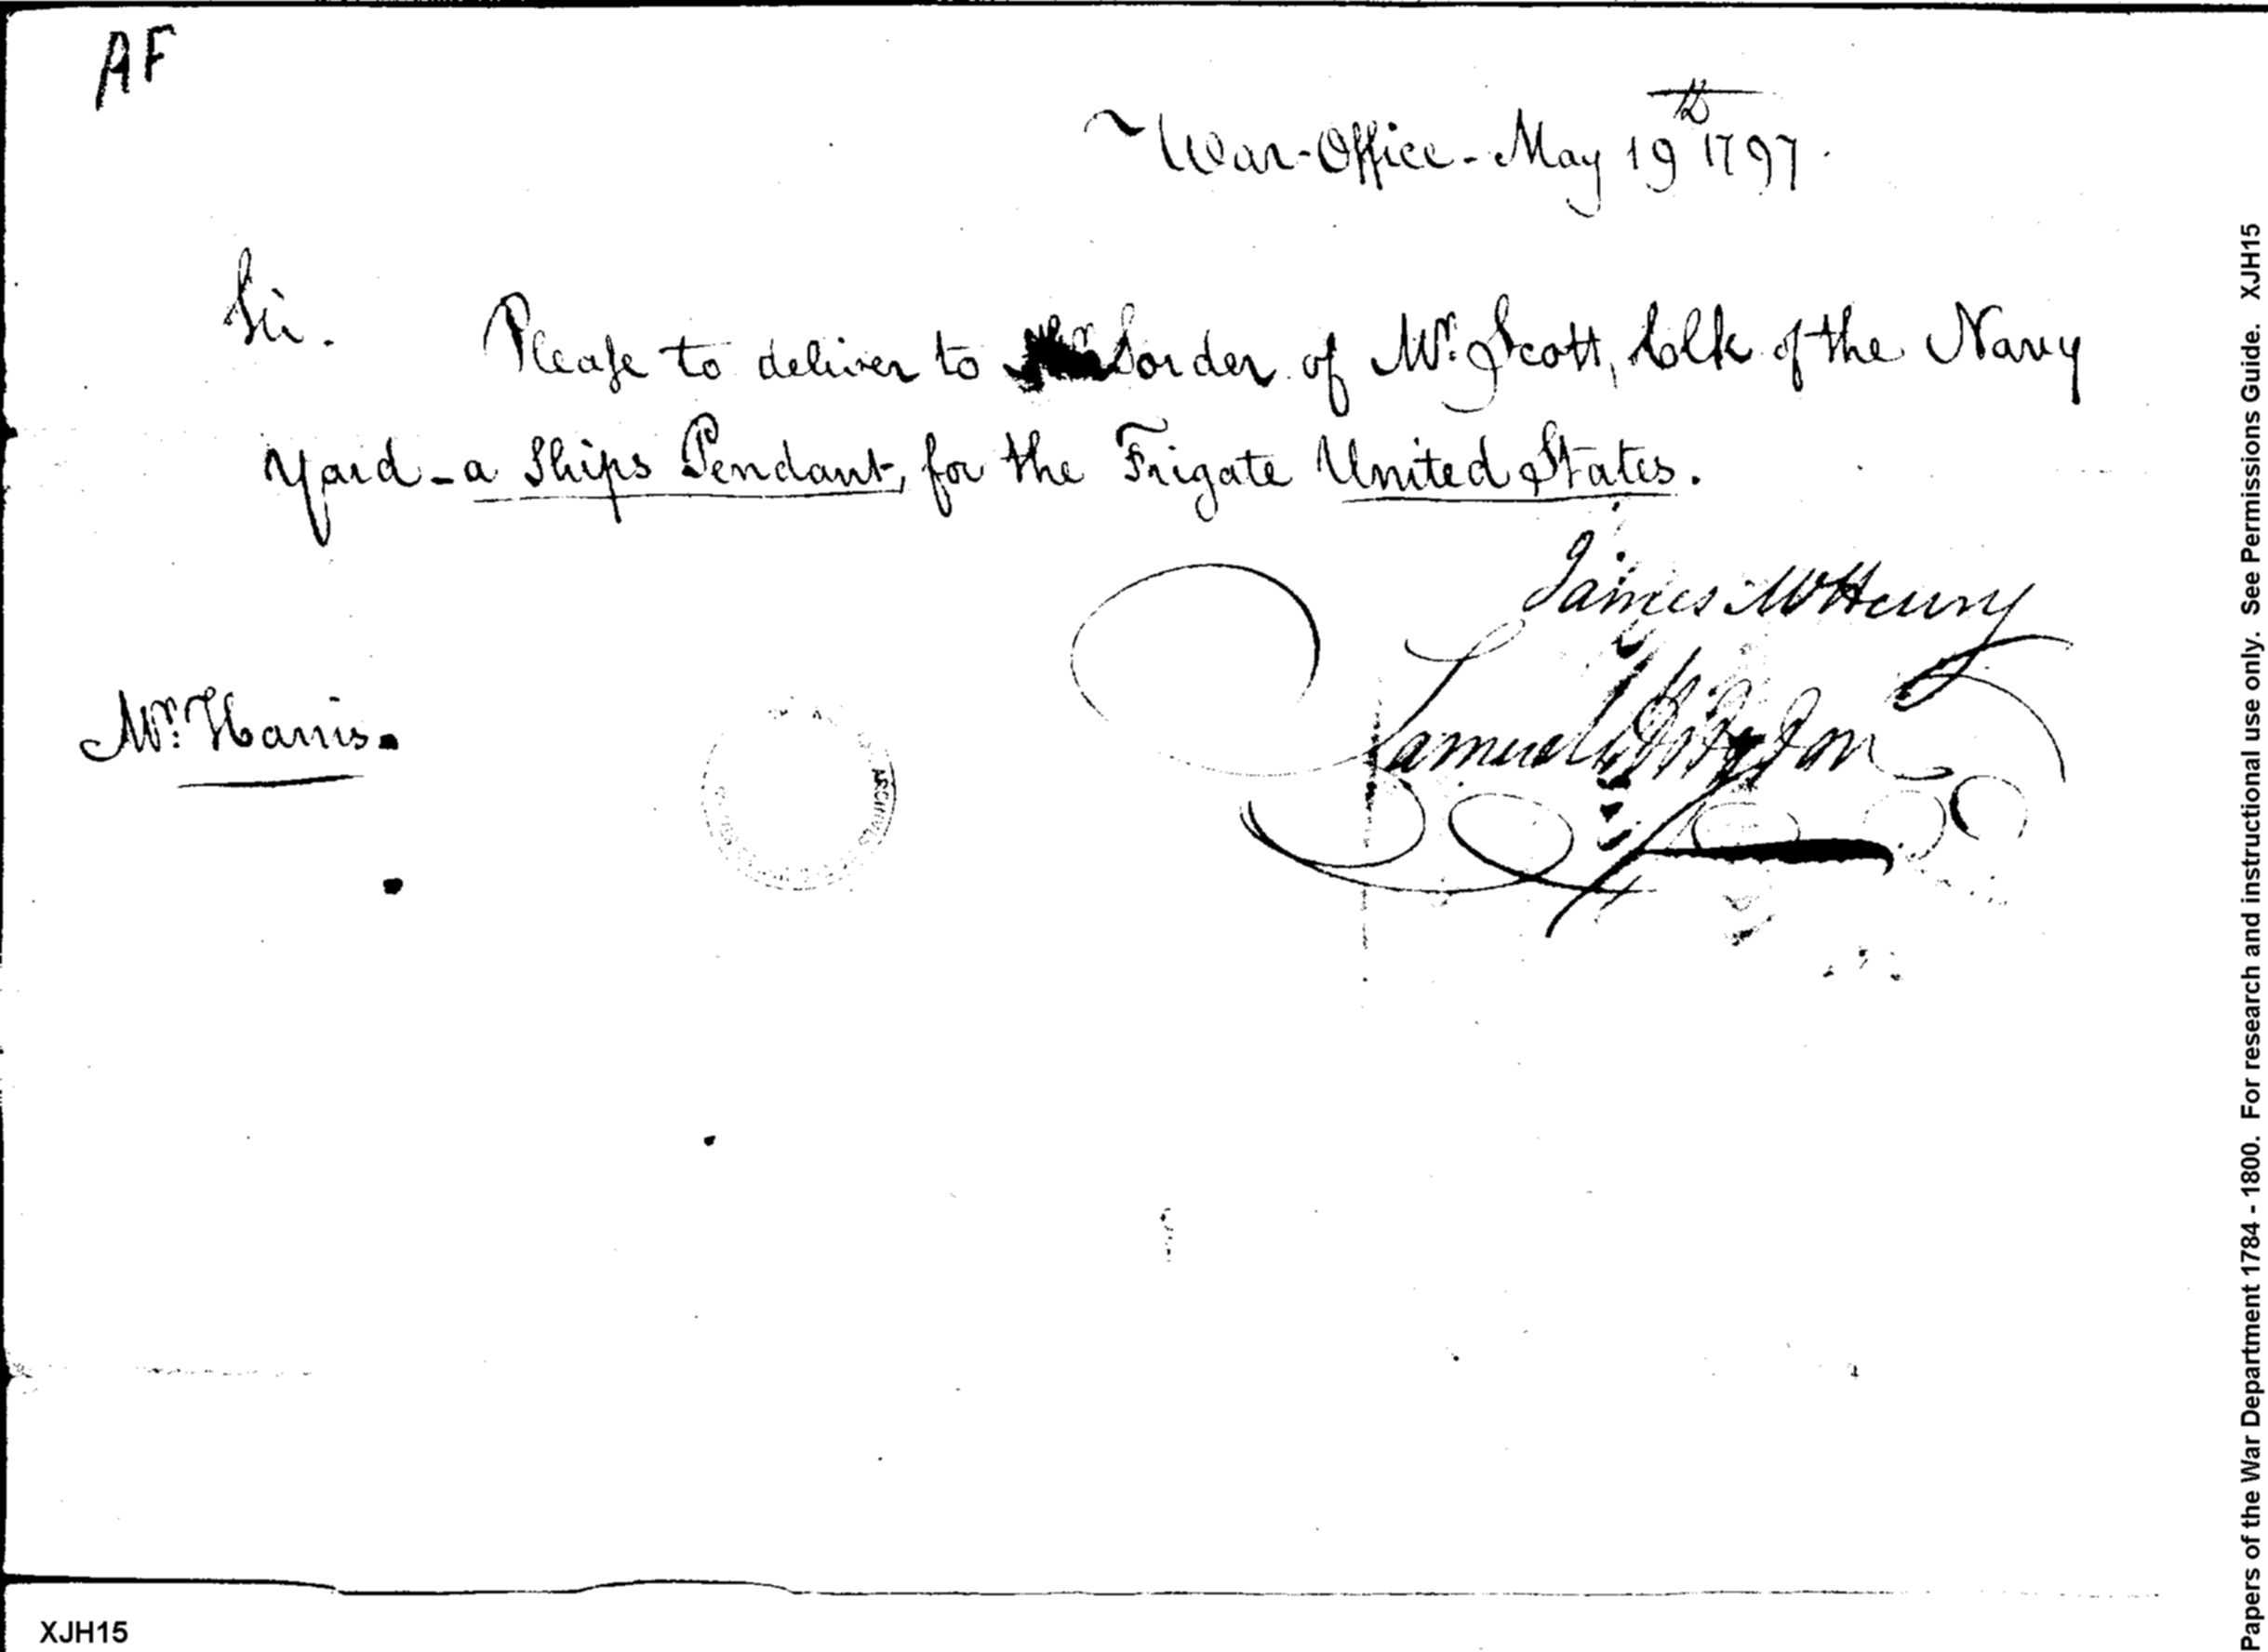 AF
War-Office - May 19th 1797.
Sir. Please to deliver to order of Mr. Scott, Clk of the Navy
Yard - a Ships Pendant, for the Frigate United States.
James McHenry
Samuel Hodgdon
Mr. Harris.
ARCHIVES
XJH15
Papers of the War Department 1784 - 1800. For research and instructional use only. See Permissions Guide. XJH15